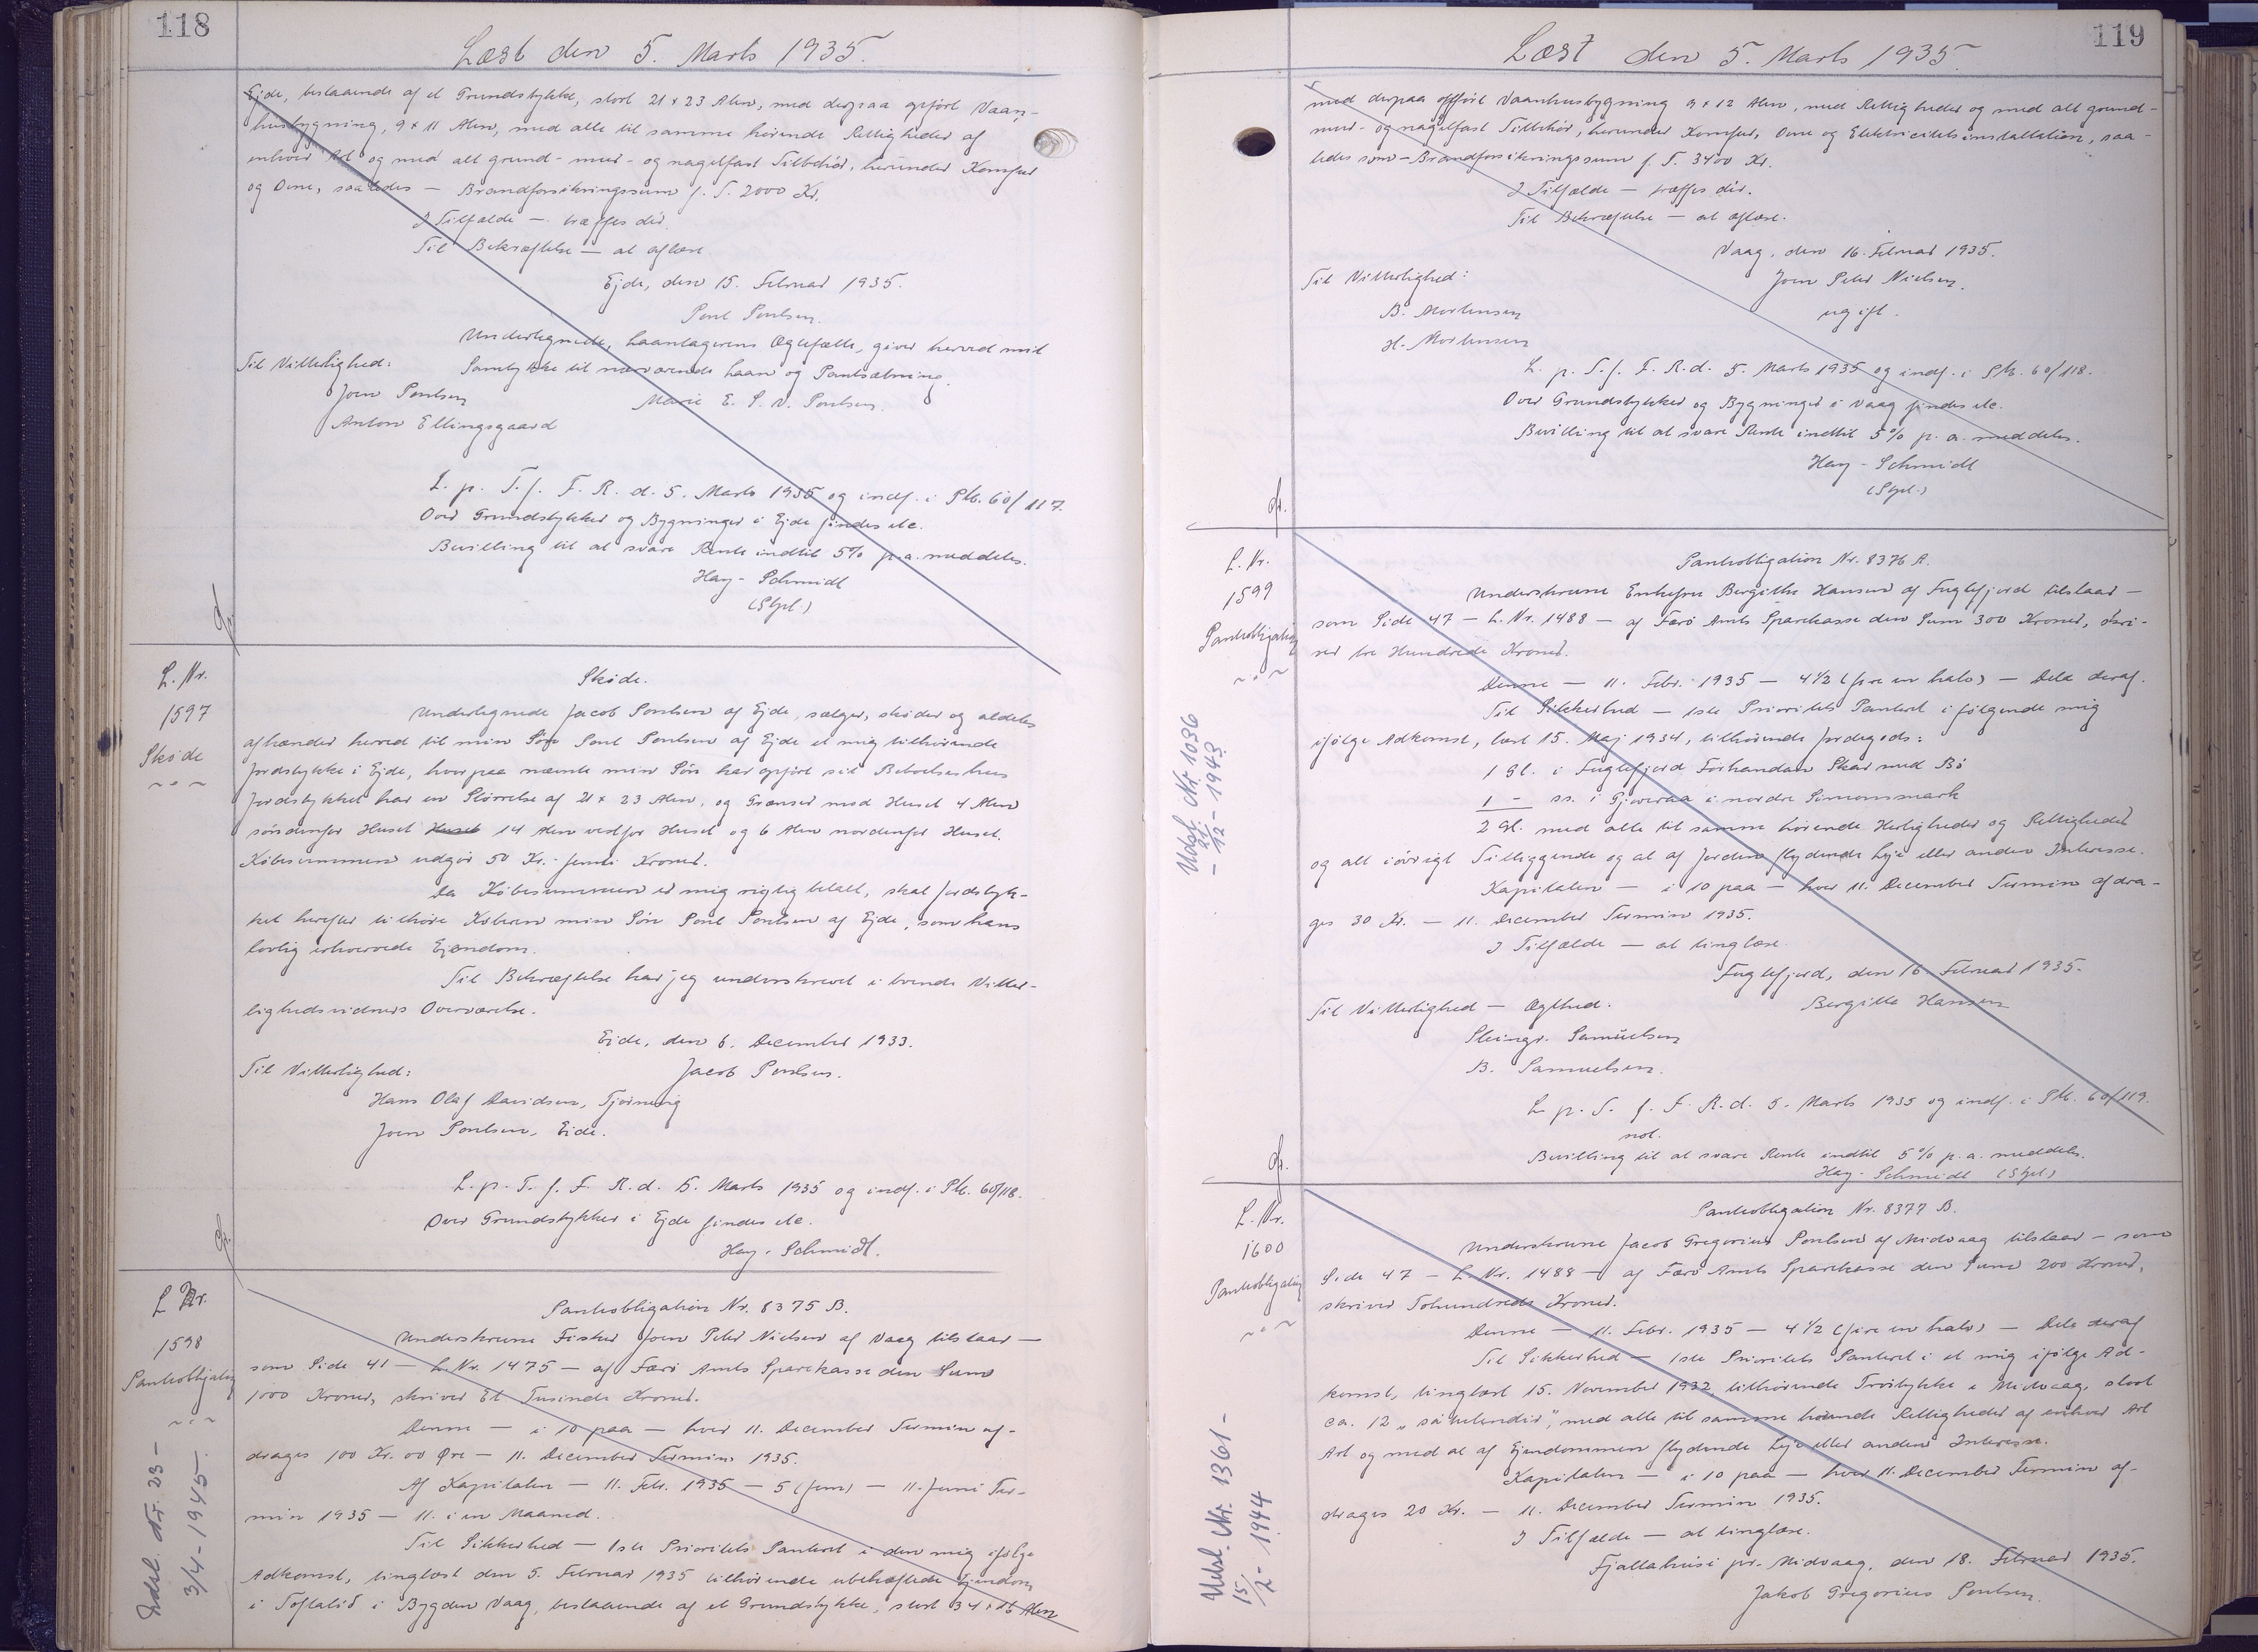 118
Læst den 5. Marts 1935.
Ejde, bestaaende af et Grundstykke, stort 21 x 23 Alen, med derpaa opført Vaan-
husbygning, 9 x 11 Alen, med alle til samme hørende Rettigheder af
enhver Art og med alt grund- mur- og nagelfast Tilbehør, herunder Komfur
og Ovne, saaledes — Brandforsikringssum f. T. 2000 Kr.
I Tilfælde — træffes dér.
Til Bekræftelse — at aflæse
Ejde, den 15. Februar 1935.
Poul Poulsen.
Undertegnede, Laantagerens Ægtefælle, giver herved mit
Til Vitterlighed: Samtykke til nærværende Laan og Pantsætning.
Joen Poulsen Marie E. S. V. Poulsen.
Anton Ellingsgaard
L. p. T. f. F. R. d. 5. Marts 1935 og indf. i Ptb. 60/117.
Over Grundstykker og Bygninger i Ejde findes etc.
Bevilling til at svare Rente indtil 5% p.a. meddeles.
Hay-Schmidt
(Stpl.)
L. Nr.
1597
Skøde
Skøde.
Undertegnede Jacob Poulsen af Ejde, sælger, skøder og aldeles
afhænder herved til min Søn Poul Poulsen af Ejde et mig tilhørende
Jordstykke i Ejde, hvorpaa nævnte min Søn har opført sit Beboelseshus
Jordstykket har en Størrelse af 21 x 23 Alen, og Grænser mod Huset 4 Alen
søndenfor Huset Huset 14 Alen vestfor Huset og 6 Alen nordenfor Huset.
Købesummen udgør 50 Kr. - femti Kroner.
Da Købesummen er mig rigtig betalt, skal Jordstyk-
ket herefter tilhøre Køberen min Søn Poul Poulsen af Ejde, som hans
lovlig erhvervede Ejendom.
Til Bekræftelse har jeg underskrevet i tvende Vitter-
lighedsvidners Overværelse.
Eide, den 6. December 1933.
Til Vitterlighed: Jacob Poulsen.
Hans Olaf Davidsen, Tjørnevig
Joen Poulsen, Eide.
L. p. T. f. F. R. d. 5. Marts 1935 og indf. i Ptb. 60/118.
Over Grundstykker i Ejde findes etc.
Hay-Schmidt.
L Nr.
1598
Pantobligation
Indl. Nr. 23 -
3/4 - 1945.
Pantobligation Nr. 8375 B.
Underskrevne Fisker Joen Peter Nielsen af Vaag tilstaar —
som Side 41 — L. Nr. 1475 — af Færø Amts Sparekasse den Sum
1000 Kroner, skriver Et Tusinde Kroner.
Denne — i 10 paa — hver 11. December Termin af-
drages 100 Kr. 00 Øre — 11. December Termin 1935.
Af Kapitalen — 11. Febr. 1935 — 5 (fem) — 11. Juni Ter-
min 1935 — 11. i en Maaned.
Til Sikkerhed — 1ste Prioritets Panteret i den mig ifølge
Adkomst, tinglæst den 5. Februar 1935 tilhørende ubehæftede Ejendom
i Toftalid i Bygden Vaag, bestaaende af et Grundstykke, stort 34 x 26 Alen
119
Læst den 5. Marts 1935.
med derpaa opført Vaanhusbygning 9 x 12 Alen, med Rettigheder og med alt grund-
mur- og nagelfast Tilbehør, herunder Komfur, Ovne og Elektricitetsinstallation, saa-
ledes som — Brandforsikringssum f. T. 3400 Kr.
I Tilfælde — træffes dér.
Til Bekræftelse — at aflæse.
Vaag, den 16. Februar 1935.
Til Vitterlighed: Joen Peter Nielsen.
B. Mortensen ugift.
H. Mortensen
L. p. T. f. F. R. d. 5. Marts 1935 og indf. i Ptb. 60/118.
Over Grundstykker og Bygninger i Vaag findes etc.
Bevilling til at svare Rente indtil 5% p. a. meddeles.
Hay-Schmidt
(Stpl.)
L. Nr.
1599
Pantobligation
Udsl. Nr. 1036
21/12 - 1943
Pantobligation Nr. 8376 A.
Underskrevne Enkefru Bergithe Hansen af Fuglefjord tilstaar —
som Side 47 — L. Nr. 1488 — af Færø Amts Sparekasse den Sum 300 Kroner, skri-
ver tre Hundrede Kroner.
Denne — 11. Febr. 1935 — 4 1/2 (fire en halv) — Dele deraf.
Til Sikkerhed — 1ste Prioritets Panteret i følgende mig
ifølge Adkomst, læst 15. Maj 1934, tilhørende Jordegods:
1 Gl. i Fuglefjord Forhandan Skar med Bø
1 - ss. i Gjoveraa i nordre Simonsmark
2 Gl. med alle til samme hørende Herligheder og Rettigheder
og alt iøvrigt Tilliggende og al af Jorden flydende Leje eller anden Interesse.
Kapitalen — i 10 paa — hver 11. December Termin afdra-
ges 30 Kr. — 11. December Termin 1935.
I Tilfælde — at tinglæse.
Fuglefjord, den 16. Februar 1935.
Til Vitterlighed — Ægthed. Bergitte Hansen
Steingr. Samuelsen
B. Samuelsen.
L. p. T. f. F. R. d. 5. Marts 1935 og indf. i Ptb. 60/119.
not.
Bevilling til at svare Rente indtil 5% p. a. meddeles.
Hay-Schmidt (Stpl.)
L. Nr.
1600
Pantobligation
Udsl. Nr. 1361 -
15/2 - 1944
Pantobligation Nr. 8377 B.
Underskrevne Jacob Gregorius Poulsen af Midvaag tilstaar — som
Side 47 — L. Nr. 1488 — af Færø Amts Sparekasse den Sum 200 Kroner,
skriver Tohundrede Kroner.
Denne — 11. Febr. 1935 — 4 1/2 (fire en halv) — Dele deraf
Til Sikkerhed — 1ste Prioritets Panteret i et mig ifølge Ad-
komst, tinglæst 15. November 1932, tilhørende Trøstykke i Midvaag, stort
ca. 12 "såtulendir", med alle til samme hørende Rettigheder af enhver Art
Art og med al af Ejendommen flydende Leje eller anden Interesse.
Kapitalen — i 10 paa — hver 11. December Termin af-
drages 20 Kr. — 11. December Termin 1935.
I Tilfælde — at tinglæse.
Fjallahúsi pr. Midvaag, den 18. Februar 1935.
Jakob Gregorius Poulsen.